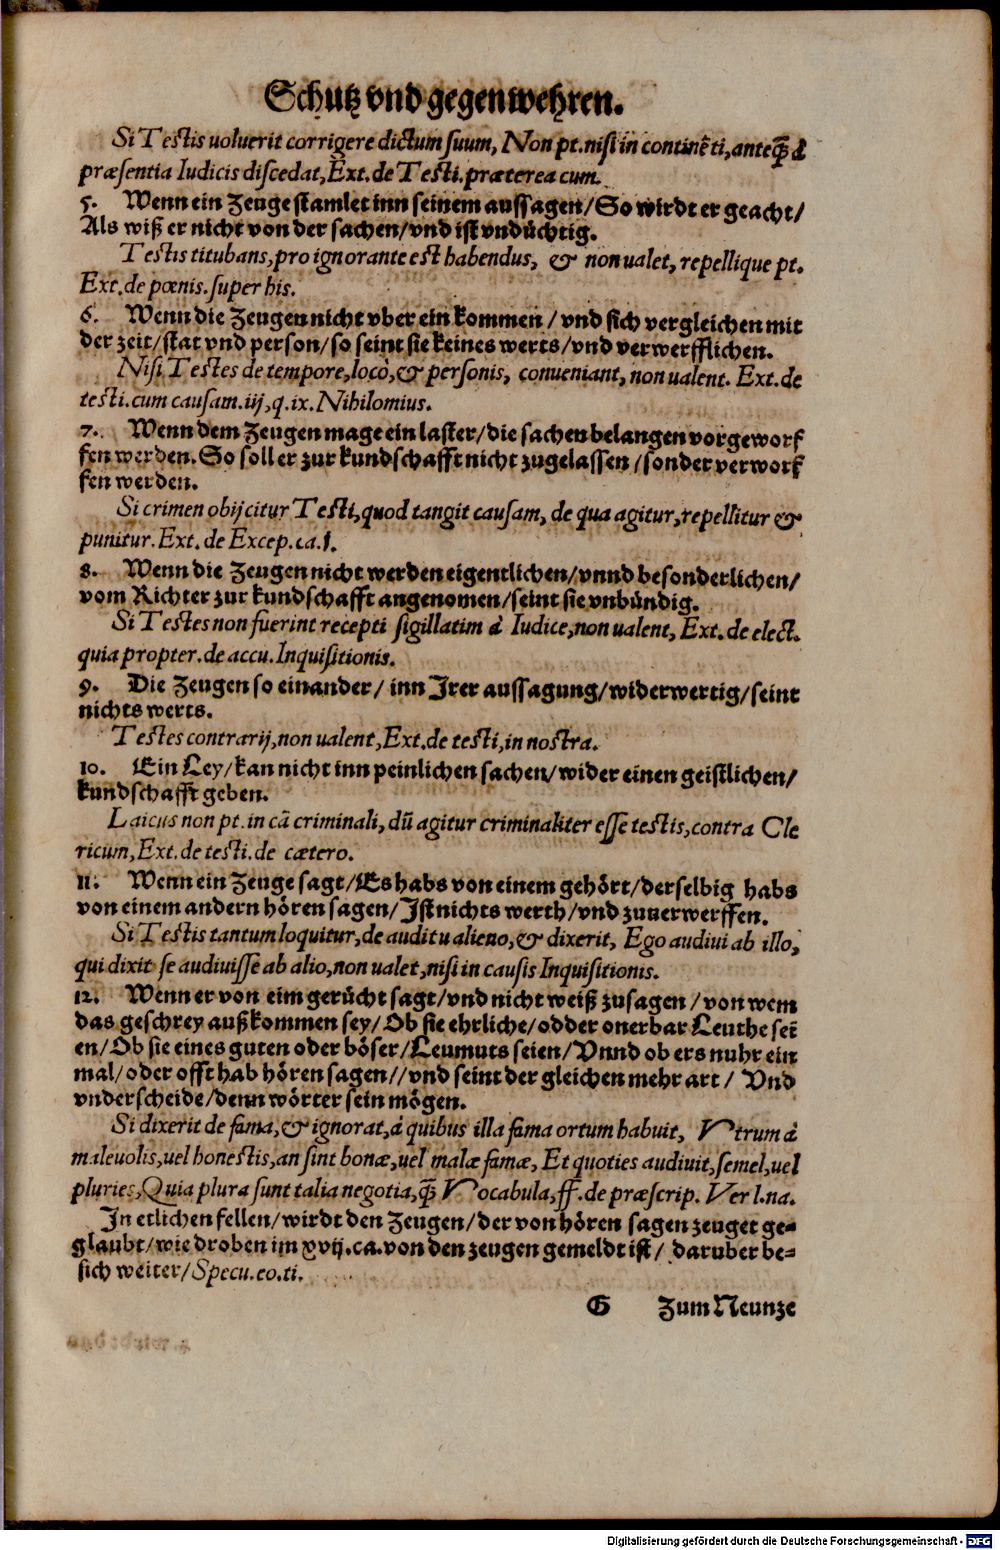 Schutz vnd gegenwehren.
Si Testis uoluerit corrigere dictum suum, Non pt. nisi in continēti, anteq̃ à
præsentia Iudicis discedat, Ext. de Testi. præterea cum.
5. Wenn ein Zeuge stamlet inn seinem aussagen/So wirdt er geacht/
Als wiß er nicht von der sachen/vnd ist vndüchtig.
Testis titubans, pro ignorante est habendus, & non ualet, repellique pt.
Ext. de pœnis. super his.
6. Wenn die Zeugen nicht vber ein kommen / vnd sich vergleichen mit
der zeit/stat vnd person/so seint sie keines werts/vnd verwerfflichen.
Nisi Testes de tempore, locò, & personis, conueniant, non ualent. Ext. de
testi. cum causam. iij, q. ix. Nihilomius.
7. Wenn dem Zeugen mage ein laster/die sachen belangen vorgeworf
fen werden. So soll er zur kundschafft nicht zugelassen /sonder verworf
fen werden.
Si crimen obijcitur Testi, quod tangit causam, de qua agitur, repellitur &
punitur. Ext. de Excep. ca. 1.
8. Wenn die Zeugen nicht werden eigentlichen/vnnd besonderlichen/
vom Richter zur kundschafft angenomen/seint sie vnbündig.
Si Testes non fuerint recepti sigillatim à Iudice, non ualent, Ext. de elect.
quia propter. de accu. Inquisitionis.
9. Die Zeugen so einander/ inn Jrer aussagung/widerwertig/seint
nichts werts.
Testes contrarij, non ualent, Ext. de testi, in nostra.
10. Ein Ley/kan nicht inn peinlichen sachen/wider einen geistlichen/
kundschafft geben.
Laicus non pt. in cā criminali, dū agitur criminaliter esse testis, contra Cle
ricum, Ext. de testi. de cætero.
11. Wenn ein Zeuge sagt/Es habs von einem gehört/derselbig habs
von einem andern hören sagen/Jst nichts werth/vnd zuuerwerffen.
Si Testis tantum loquitur, de auditu alieno, & dixerit, Ego audiui ab illo,
qui dixit se audiuisse ab alio, non ualet, nisi in causis Inquisitionis.
12. Wenn er von eim gerücht sagt/vnd nicht weiß zusagen / von wem
das geschrey außkommen sey/Ob sie ehrliche/odder onerbar Leuthe sei
en/Ob sie eines guten oder böser/Leumuts seien/Vnnd ob ers nuhr ein
mal/oder offt hab hören sagen//vnd seint der gleichen mehr art/ Vnd
vnderscheide/denn wörter sein mögen.
Si dixerit de fama, & ignorat, à quibus illa fama ortum habuit, Vtrum à
maleuolis, uel honestis, an sint bonæ, uel malæ famæ, Et quoties audiuit, semel, uel
pluries, Quia plura sunt talia negotia, q̃ Vocabula, ff. de præscrip. Ver l. na.
In etlichen fellen/wirdt den Zeugen/der von hören sagen zeuget ge=
glaubt/wie droben im xvij. ca. von den zeugen gemeldt ist/ daruber be=
sich weiter/Specu. eo. ti.
G Zum Neunze
Digitalisierung gefördert durch die Deutsche Forschungsgemeinschaft - DFG